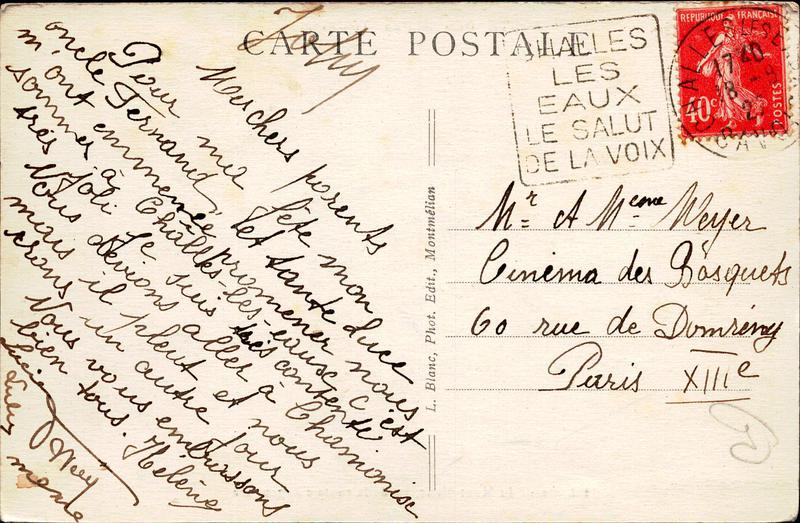 CARTE POSTALE
Mes chers parents
Pour ma fête mon
oncle Fernand, et tante Luce
m'ont emmenée promener nous
sommes à Challes-les-eaux, c'est
très joli Je suis très contente
Nous devions aller à Chamonise
mais il pleut et nous
irons un autre jour
Nous vous embrassons
bien tous. Hélène
Lucie
L. Blanc, Phot. Edit., Montmélian
CHALLES
LES
EAUX
LE SALUT
DE LA VOIX
REPUBLIQUE FRANÇAISE
40c
POSTES
CHALLES
17 40
18
Mr & Meme Meyer
Cinéma des Bosquets
60 rue de Domrémy
Paris XIIIe